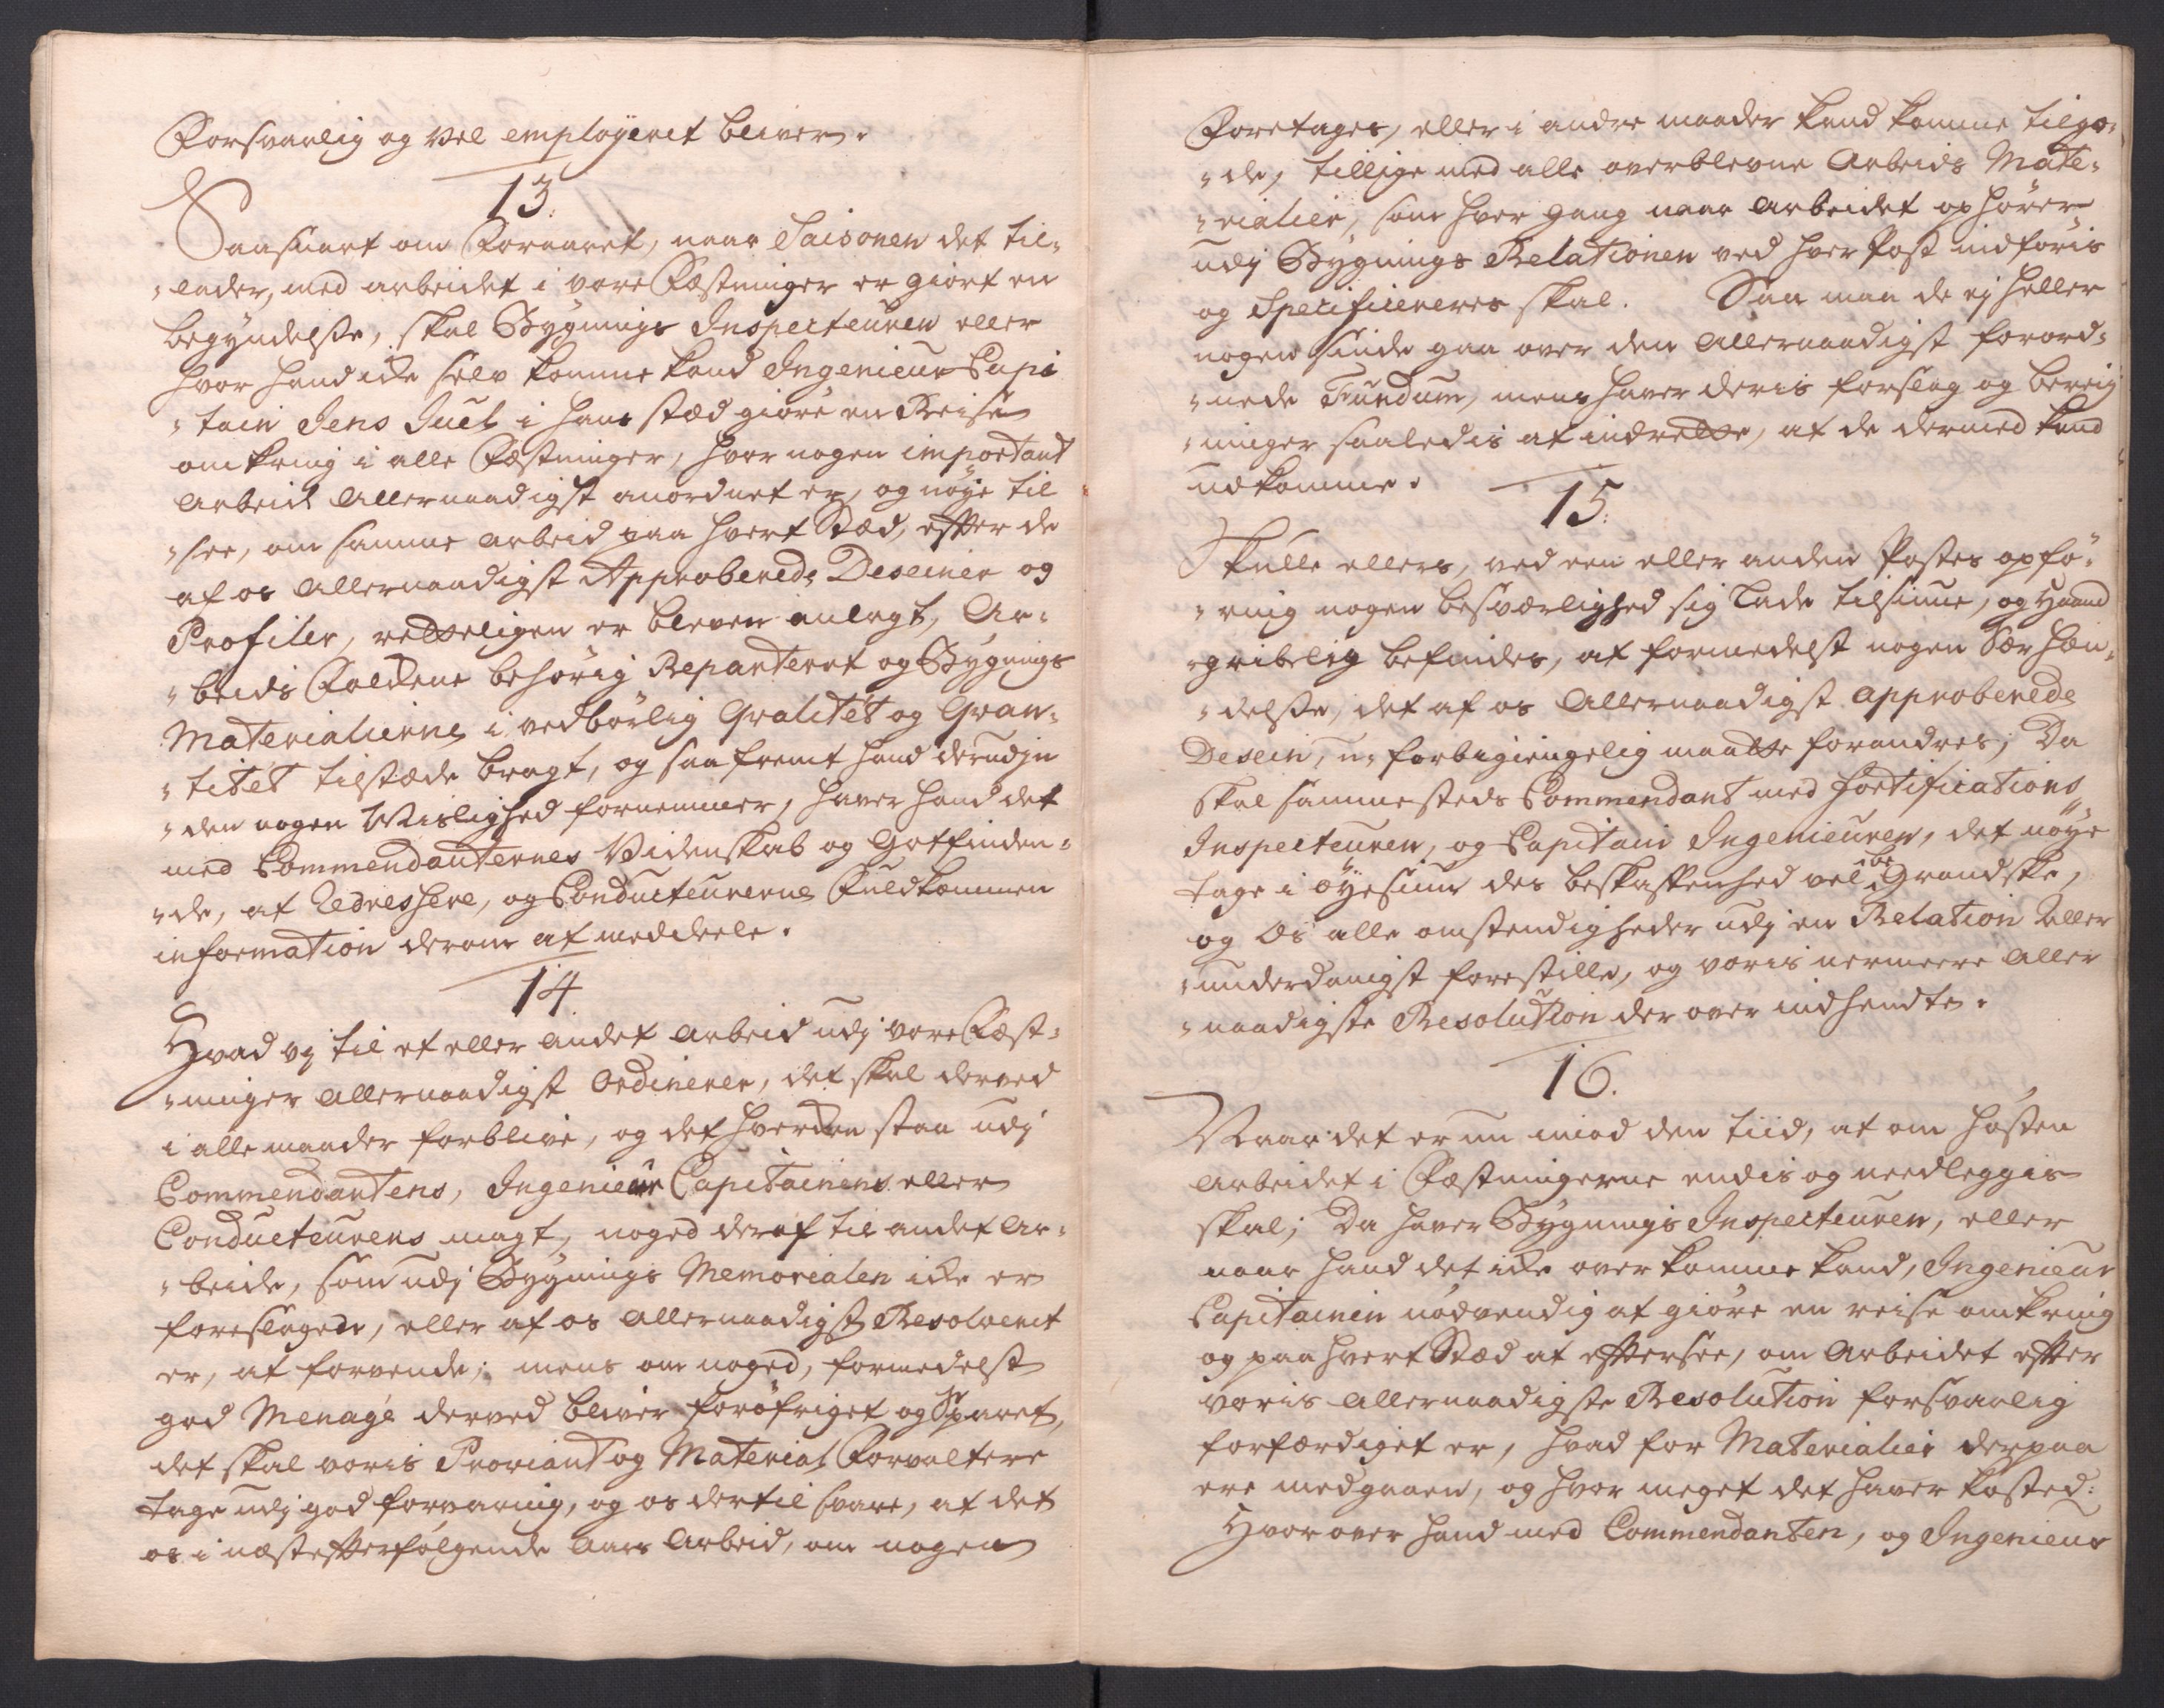 Forsvarlig og vel employeret bliver.
13.
Saasnart om Foraaret, naar Saisonen det til„
„lader, med arbeidet i vore Fæstninger er giort en
begyndelsse, skal Bygnings Inspecteuren eller
hvor hand icke selv komme kand Ingenieur Capi
„tain Jens Juel i hans stæd giøre en Reise
omkring i alle Fæstninger, hvor nogen important
Arbeid Allernaadigst anordnet er, og nøye til
„see, om samme arbeid paa hvert Stæd, efter de
af os Allernaadigst Approberede Desseiner og
Profiler, retteligen er bleven anlagt, Ar„
„beids Folckene behørig Reparteret og Bygnings
Materialierne i vedbørlig Qvalitét og Qvan„
„titét tilstæde bragt, og saafremt hand derudjn
„den nogen Wislighed fornemmer, haver hand det
med Commendanternes Videnskab og Gotfinden„
„de, at Redressere, og Conducteurerne Fuldkommen
information derom at meddeele.
14
Hvad vj til et eller andet arbeid udj vore Fæst„
„ninger allernaadigst Ordinerer, det skal derved
i alle maader forblive, og det hverden staa udj
Commendantens, Ingenieur Capitainens eller
Conducteurens magt, noged deraf til andet Ar„
„beide, som udj Bygnings Memorialen icke er
foreslagede, eller af os allernaadigst Resolveret
er, at forvende; mens om noged, formedelst
god Menage derved bliver forøfriget og Sparet,
det skal voris Proviant og Material Forvaltere
tage udj god forvaring, og os dertil svare, at det
os i næstefterfølgende Aars Arbeid, om nogen
Foretages, eller i andre maader kand komme tilgo„
„de, tillige med alle overblevne Arbeids Mate„
„rialier, som hver gang naar arbeidet ophører
udj Bygnings Relationen ved hver Post indføris
og Specificeres skal. Saa maa de ej heller
nogen sinde gaa over den Allernaadigst forord„
„nede Fundum, mens haver deris forslag og bereig
„ninger saaledis at indrette, at de dermed kand
udkomme.
15.
Skulle ellers, ved een eller anden Postes opfø„
„ring nogen besværlighed sig lade tilsiune, og haand
„gribelig befindes, at formedelst nogen Sær hæn„
„delsse, det af os Allernaadigst approberede
Dessein, u„forbigiengelig maatte forandres; Da
skal sammesteds Commendant med Fortifications
Inspecteuren, og Capitain Ingenieuren, det nøye
tage i øyesiun des beskaffenhed vel Grandske,
og Os alle omstendigheder udj en Relation aller
„underdanigst forestille, og voris nermeere Aller
„naadigste Resolution der over indhendte.
16.
Naar det er nu imod den tiid, at om høsten
Arbeidet i Fæstningerne endis og needleggis
skal; Da haver Bygnings Inspecteuren, eller
naar hand det icke overkomme kand, Ingenieur
Capitainen nødvendig at giøre en reise omkring
og paa hvert Stæd at eftersee, om Arbeidet efter
voris allernaadigste Resolution forsvarlig
forfærdiget er, hvad for Materialier derpaa
ere medgaaen, og hvor meget det haver kosted:
Hvorover hand med Commendanten, og Ingenieur